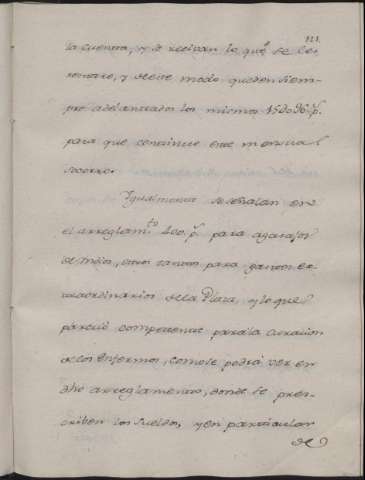 121.
la cuenta, y se reciban lo qe. se les
restare, y deese modo queden siem-
pre adelantados los mismos 15 do 96 ps.
para que continue este mensual
socorro.
Igualmente se señalan en
el arreglamto. 400 ps. para agasajos
de Indios, otros tantos para gastos ex-
traordinarios dela Plaza, y lo que
pareció competente para la Curacion
delos Enfermos, como se podrá ver en
dho arreglamento, donde se pres-
criben los sueldos, y en particular
de